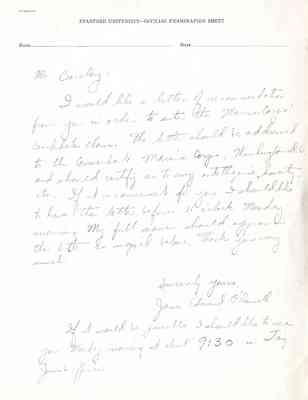 STANFORD UNIVERSITY—OFFICIAL EXAMINATION SHEET
Date
Mr.
I would like a letter of recommendation
from you in order to enter the Marine Corps'
candidate class. The letter should be addressed
to the Marine Corps, Washington
and should certify as to my intelligence, honesty
etc. If it is convenient for you I should like
to have the letter before 11 o'clock Monday
morning. My full name should appear in
the letter as signed below. Thank you very
much.
Sincerely yours,
James Edward O'
If it would be possible I should like to see
you Monday morning at about 9:30 in
office